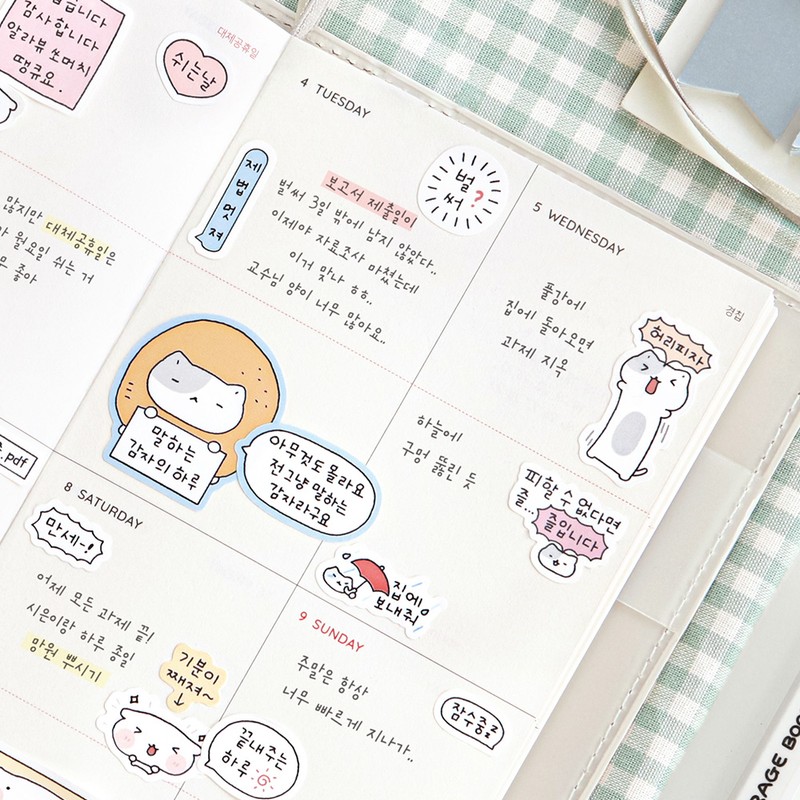 감사합니다
알라뷰 쏘머치
땡큐요.
대체공휴일
쉬는날
많지만 대체공휴일은
월요일 쉬는 거
좋아
.pdf
4 TUESDAY
제법 멋져
보고서 제출일이
벌써 3일 밖에 남지 않았다..
이제야 자료조사 마쳤는데
이거 맞나 ㅎㅎ..
교수님 양이 너무 많아요..
벌써?
말하는
감자의 하루
아무것도 몰라요
전 그냥 말하는
감자라구요
5 WEDNESDAY
경칩
풀강에
집에 돌아오면
과제 지옥
허리피자
하늘에
구멍 뚫린 듯
피할 수 없다면
즐...
즐입니다
집에
보내줘
8 SATURDAY
만세~!
어제 모든 과제 끝!
시은이랑 하루 종일
망원 뿌시기
기분이
째져~
끝내주는
하루
9 SUNDAY
주말은 항상
너무 빠르게 지나가..
잠수중zz